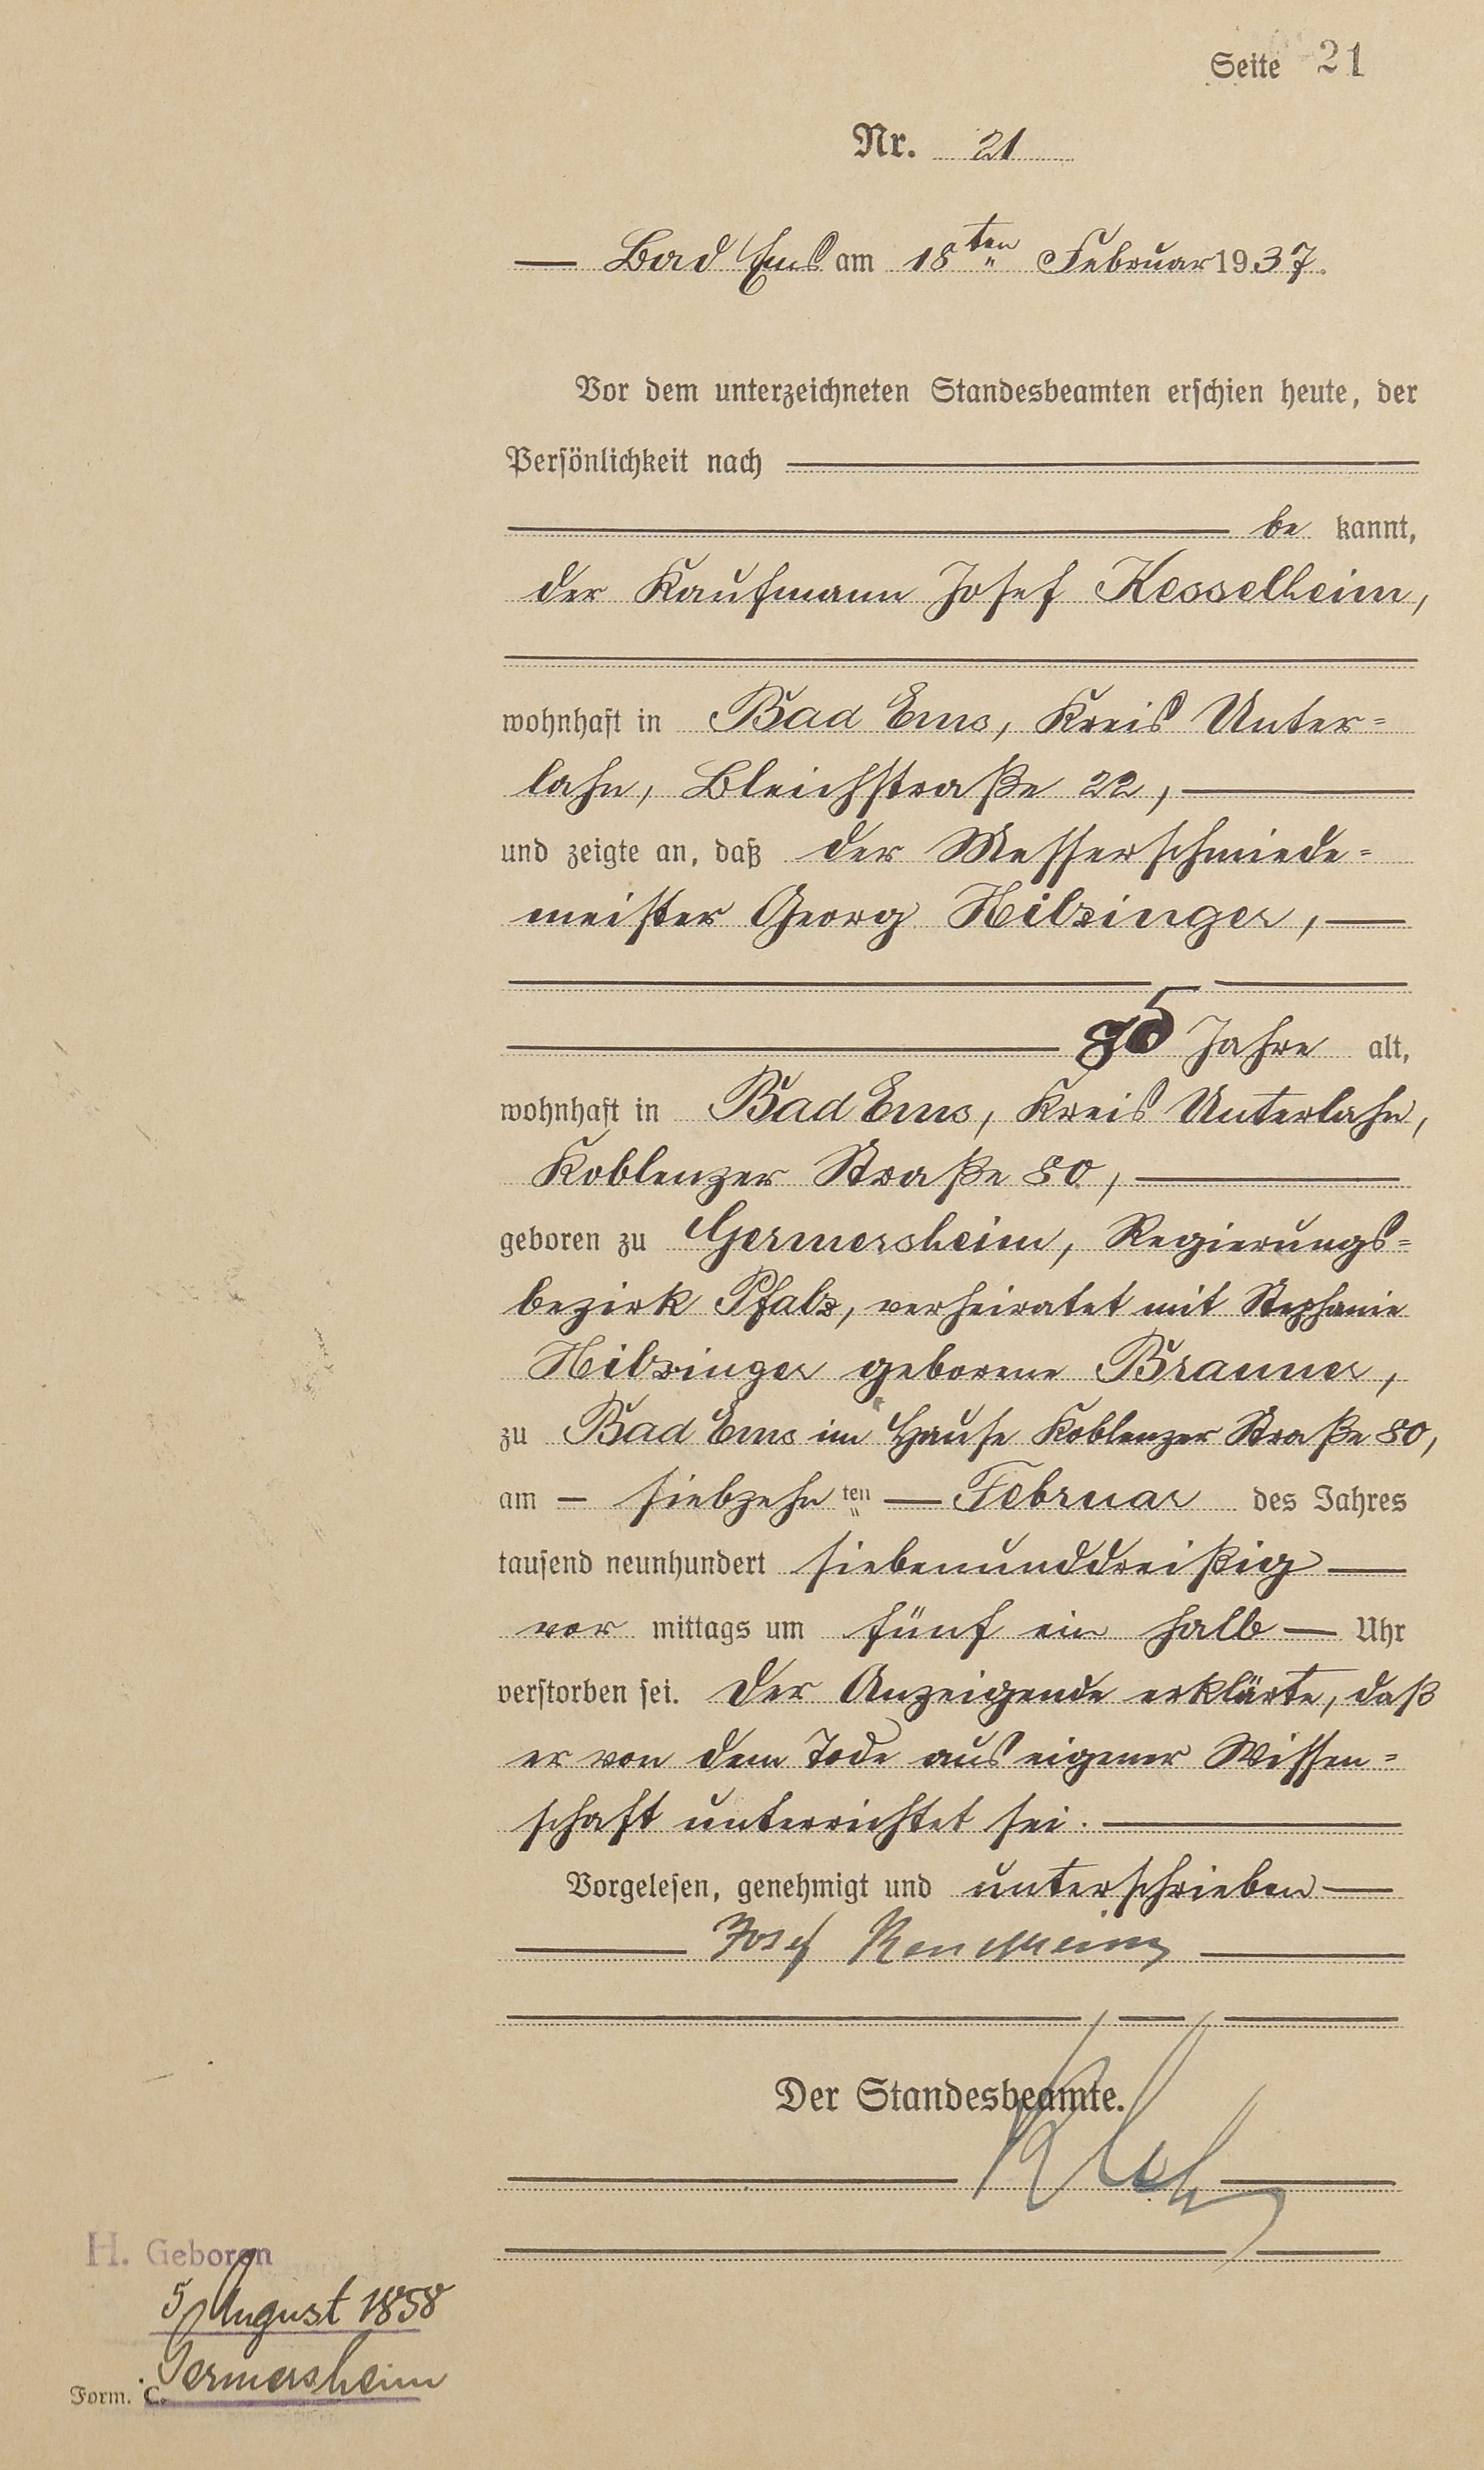 Seite 21
Nr. 21
Bad Ems am 18ten Februar 1937.
Vor dem unterzeichneten Standesbeamten erschien heute, der
Persönlichkeit nach
be kannt,
der Kaufmann Josef Kesselheim,
wohnhaft in Bad Ems, Kreis Unter=
lahn, Bleichstraße 22,
und zeigte an, daß der Messerschmiede=
meister Georg Hilzinger,
Jahre alt,
wohnhaft in Bad Ems, Kreis Unterlahn,
Koblenzer Straße 80,
geboren zu Germersheim, Regierungs=
bezirk Pfalz, verheiratet mit Stephanie
Hilzinger geborene Branner,
zu Bad Ems im Hause Koblenzer Straße 80,
am siebzehnten Februar des Jahres
tausend neunhundert siebenunddreißig
vor mittags um fünf ein halb Uhr
verstorben sei. Der Anzeigende erklärte, daß
er von dem Tode aus eigener Wissen=
schaft unterrichtet sei.
Vorgelesen, genehmigt und unterschrieben
Josef Kesselheim
Der Standesbeamte.
H. Geboren
5 August 1858
Germersheim
Form. C.